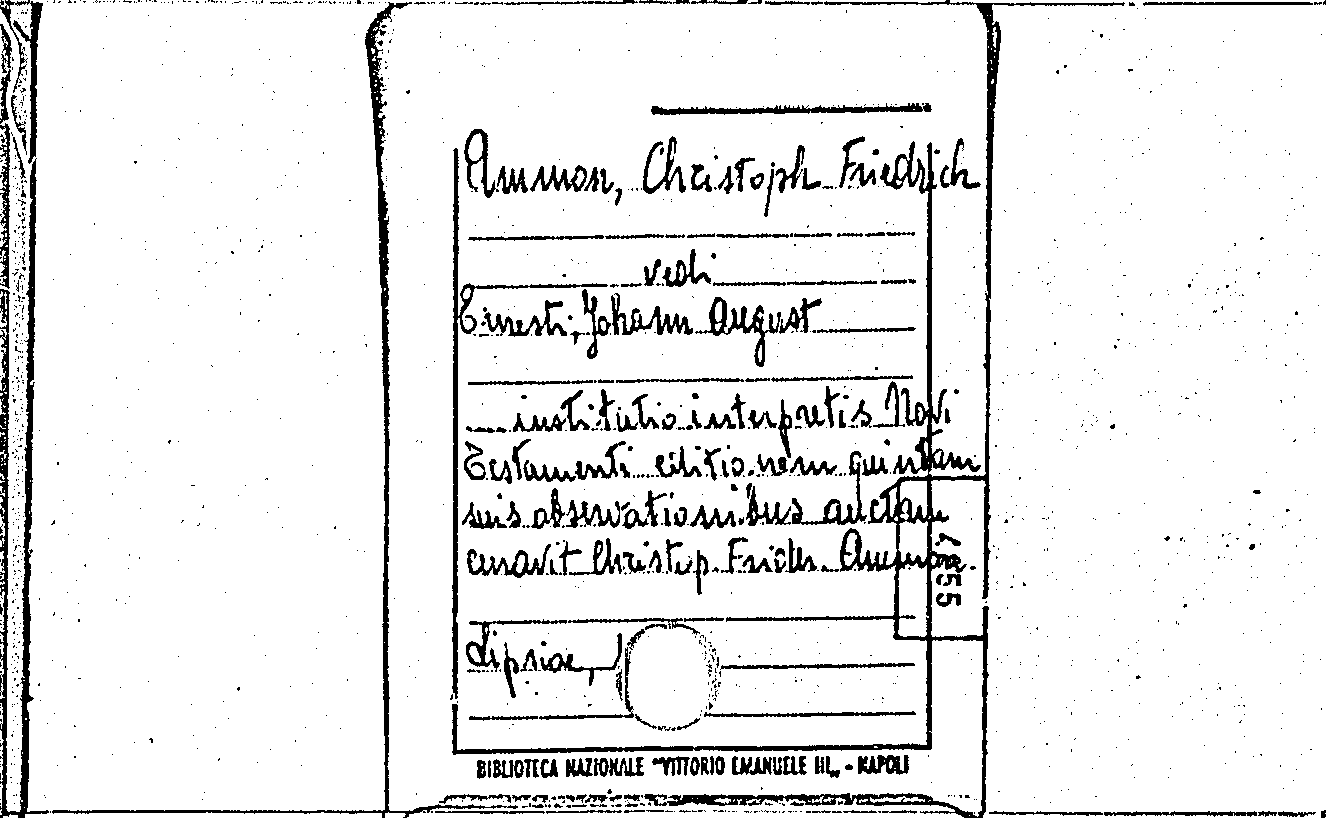 Ammon, Christoph Friedrich
vedi
Ernesti, Johann August
... institutio interpretis Novi
Testamenti editio.nem quintam
suis observationibus auctam
curavit Christop. Frider. Ammon.
Lipsiae,
BIBLIOTECA NAZIONALE "VITTORIO EMANUELE III„ - NAPOLI